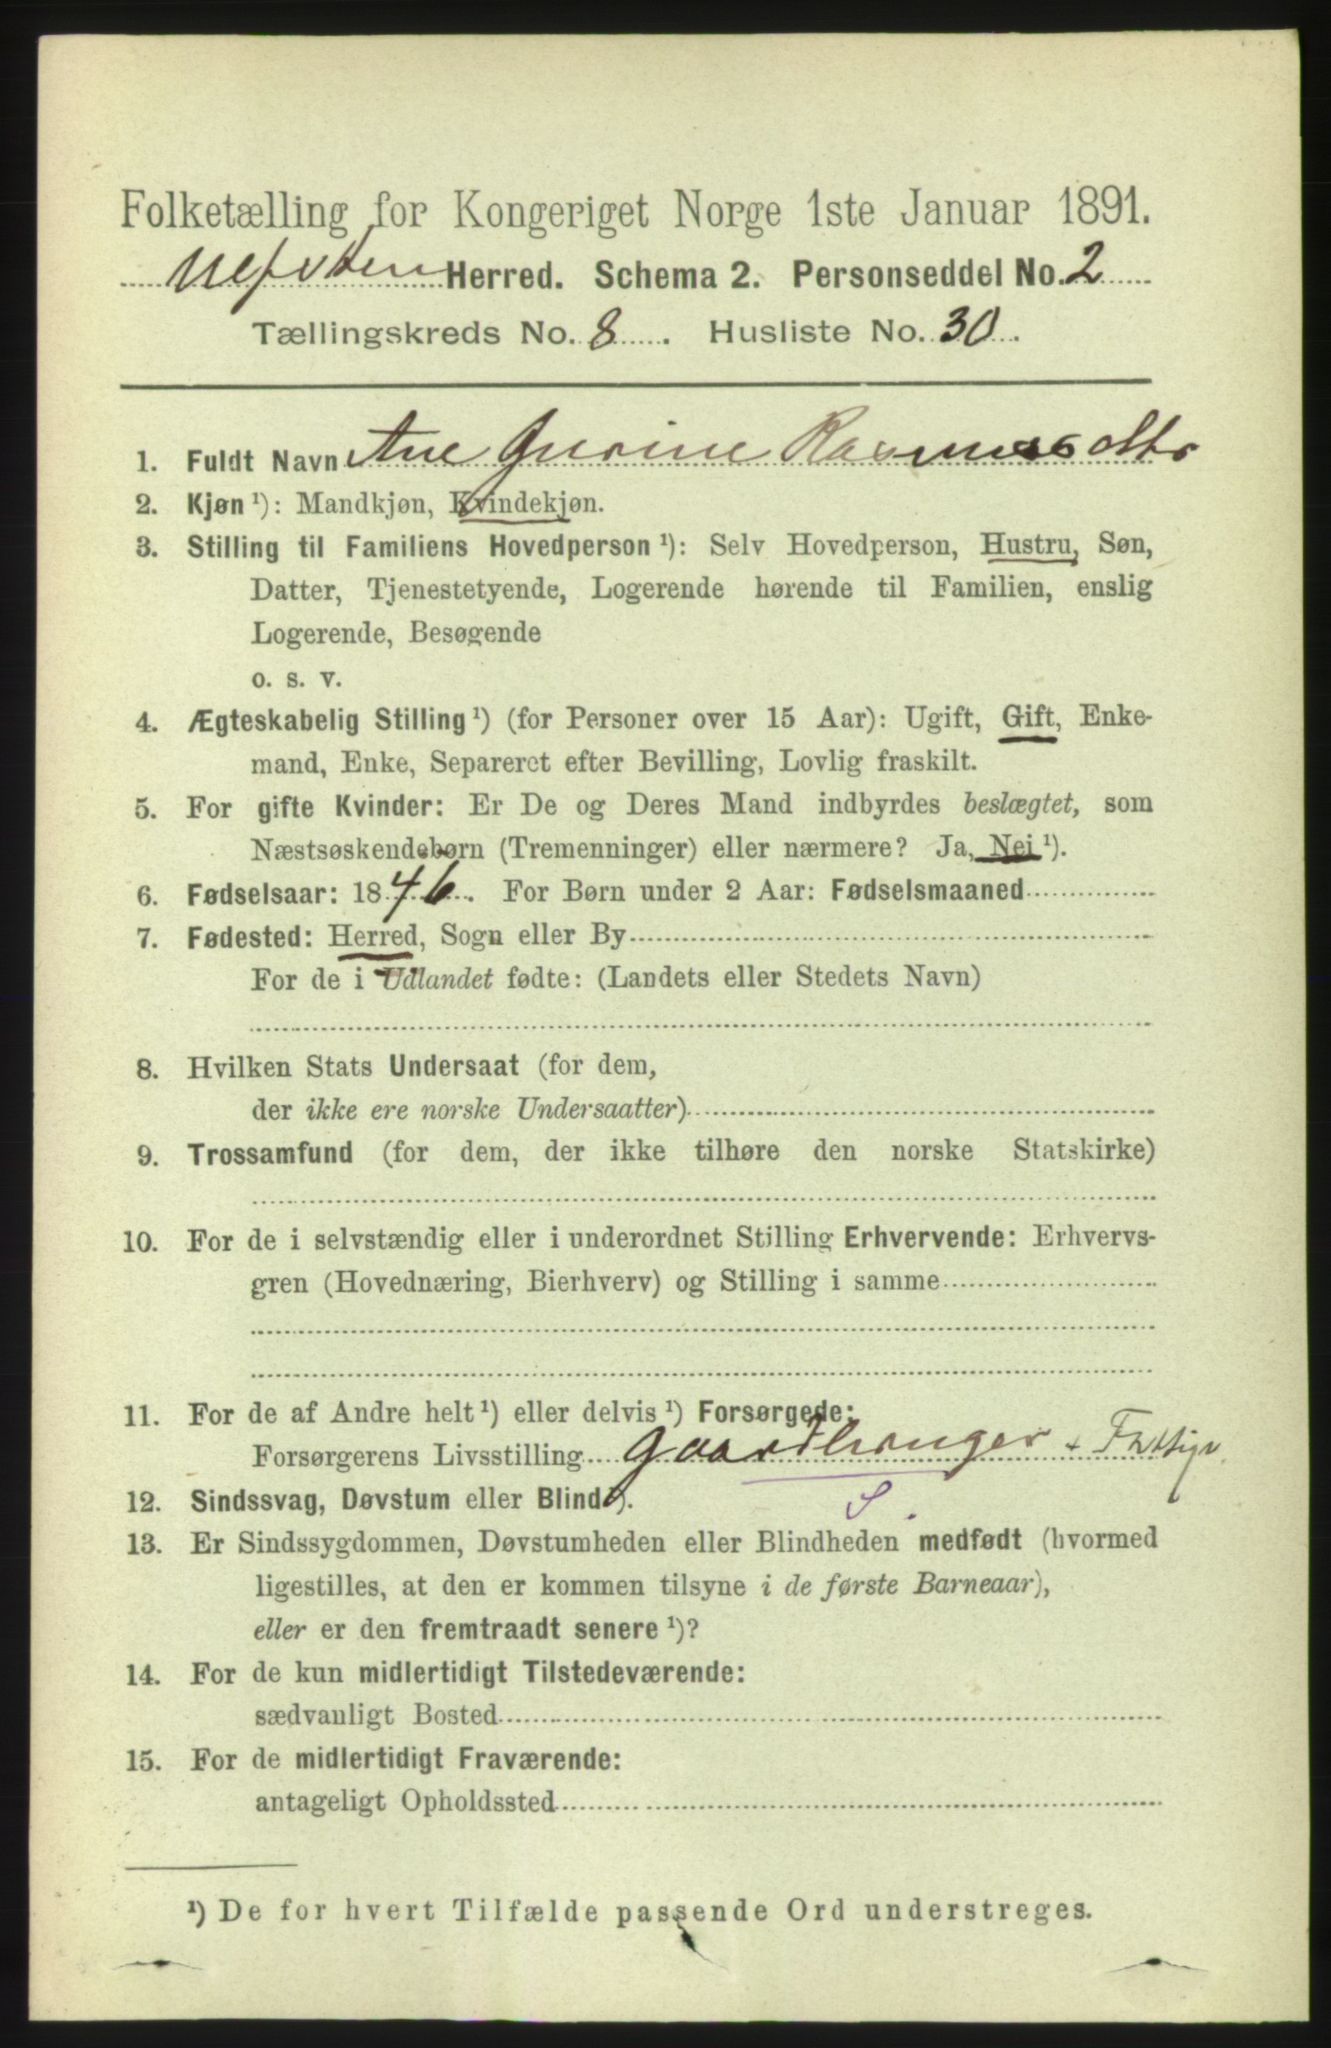 Folketælling for Kongeriget Norge 1ste Januar 1891.
Herred. Schema 2. Personseddel No. 2
Tællingskreds No. 8. Husliste No. 30.
1. Fuldt Navn Ane Gurine Rasmusdttr
2. Kjøn ¹): Mandkjøn, Kvindekjøn.
3. Stilling til Familiens Hovedperson ¹): Selv Hovedperson, Hustru, Søn,
Datter, Tjenestetyende, Logerende hørende til Familien, enslig
Logerende, Besøgende
o. s. v.
4. Ægteskabelig Stilling ¹) (for Personer over 15 Aar): Ugift, Gift, Enke-
mand, Enke, Separeret efter Bevilling, Lovlig fraskilt.
5. For gifte Kvinder: Er De og Deres Mand indbyrdes beslægtet, som
Næstsøskendebørn (Tremenninger) eller nærmere? Ja, Nei ¹).
6. Fødselsaar: 1846. For Børn under 2 Aar: Fødselsmaaned
7. Fødested: Herred, Sogn eller By
For de i Udlandet fødte: (Landets eller Stedets Navn)
8. Hvilken Stats Undersaat (for dem,
der ikke ere norske Undersaatter)
9. Trossamfund (for dem, der ikke tilhøre den norske Statskirke)
10. For de i selvstændig eller i underordnet Stilling Erhvervende: Erhvervs-
gren (Hovednæring, Bierhverv) og Stilling i samme
11. For de af Andre helt ¹) eller delvis ¹) Forsørgede:
Forsørgerens Livsstilling Gaardbruger +
S.
12. Sindssvag, Døvstum eller Blind ¹).
13. Er Sindssygdommen, Døvstumheden eller Blindheden medfødt (hvormed
ligestilles, at den er kommen tilsyne i de første Barneaar),
eller er den fremtraadt senere ¹)?
14. For de kun midlertidigt Tilstedeværende:
sædvanligt Bosted
15. For de midlertidigt Fraværende:
antageligt Opholdssted
¹) De for hvert Tilfælde passende Ord understreges.